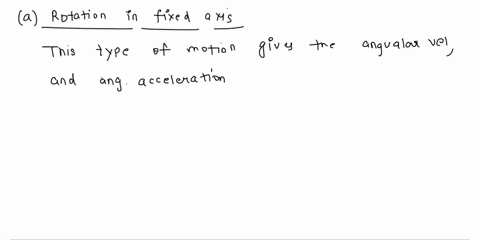 (a) Rotation in fixed axis
This type of motion gives the angualar vel,
and ang. acceleration